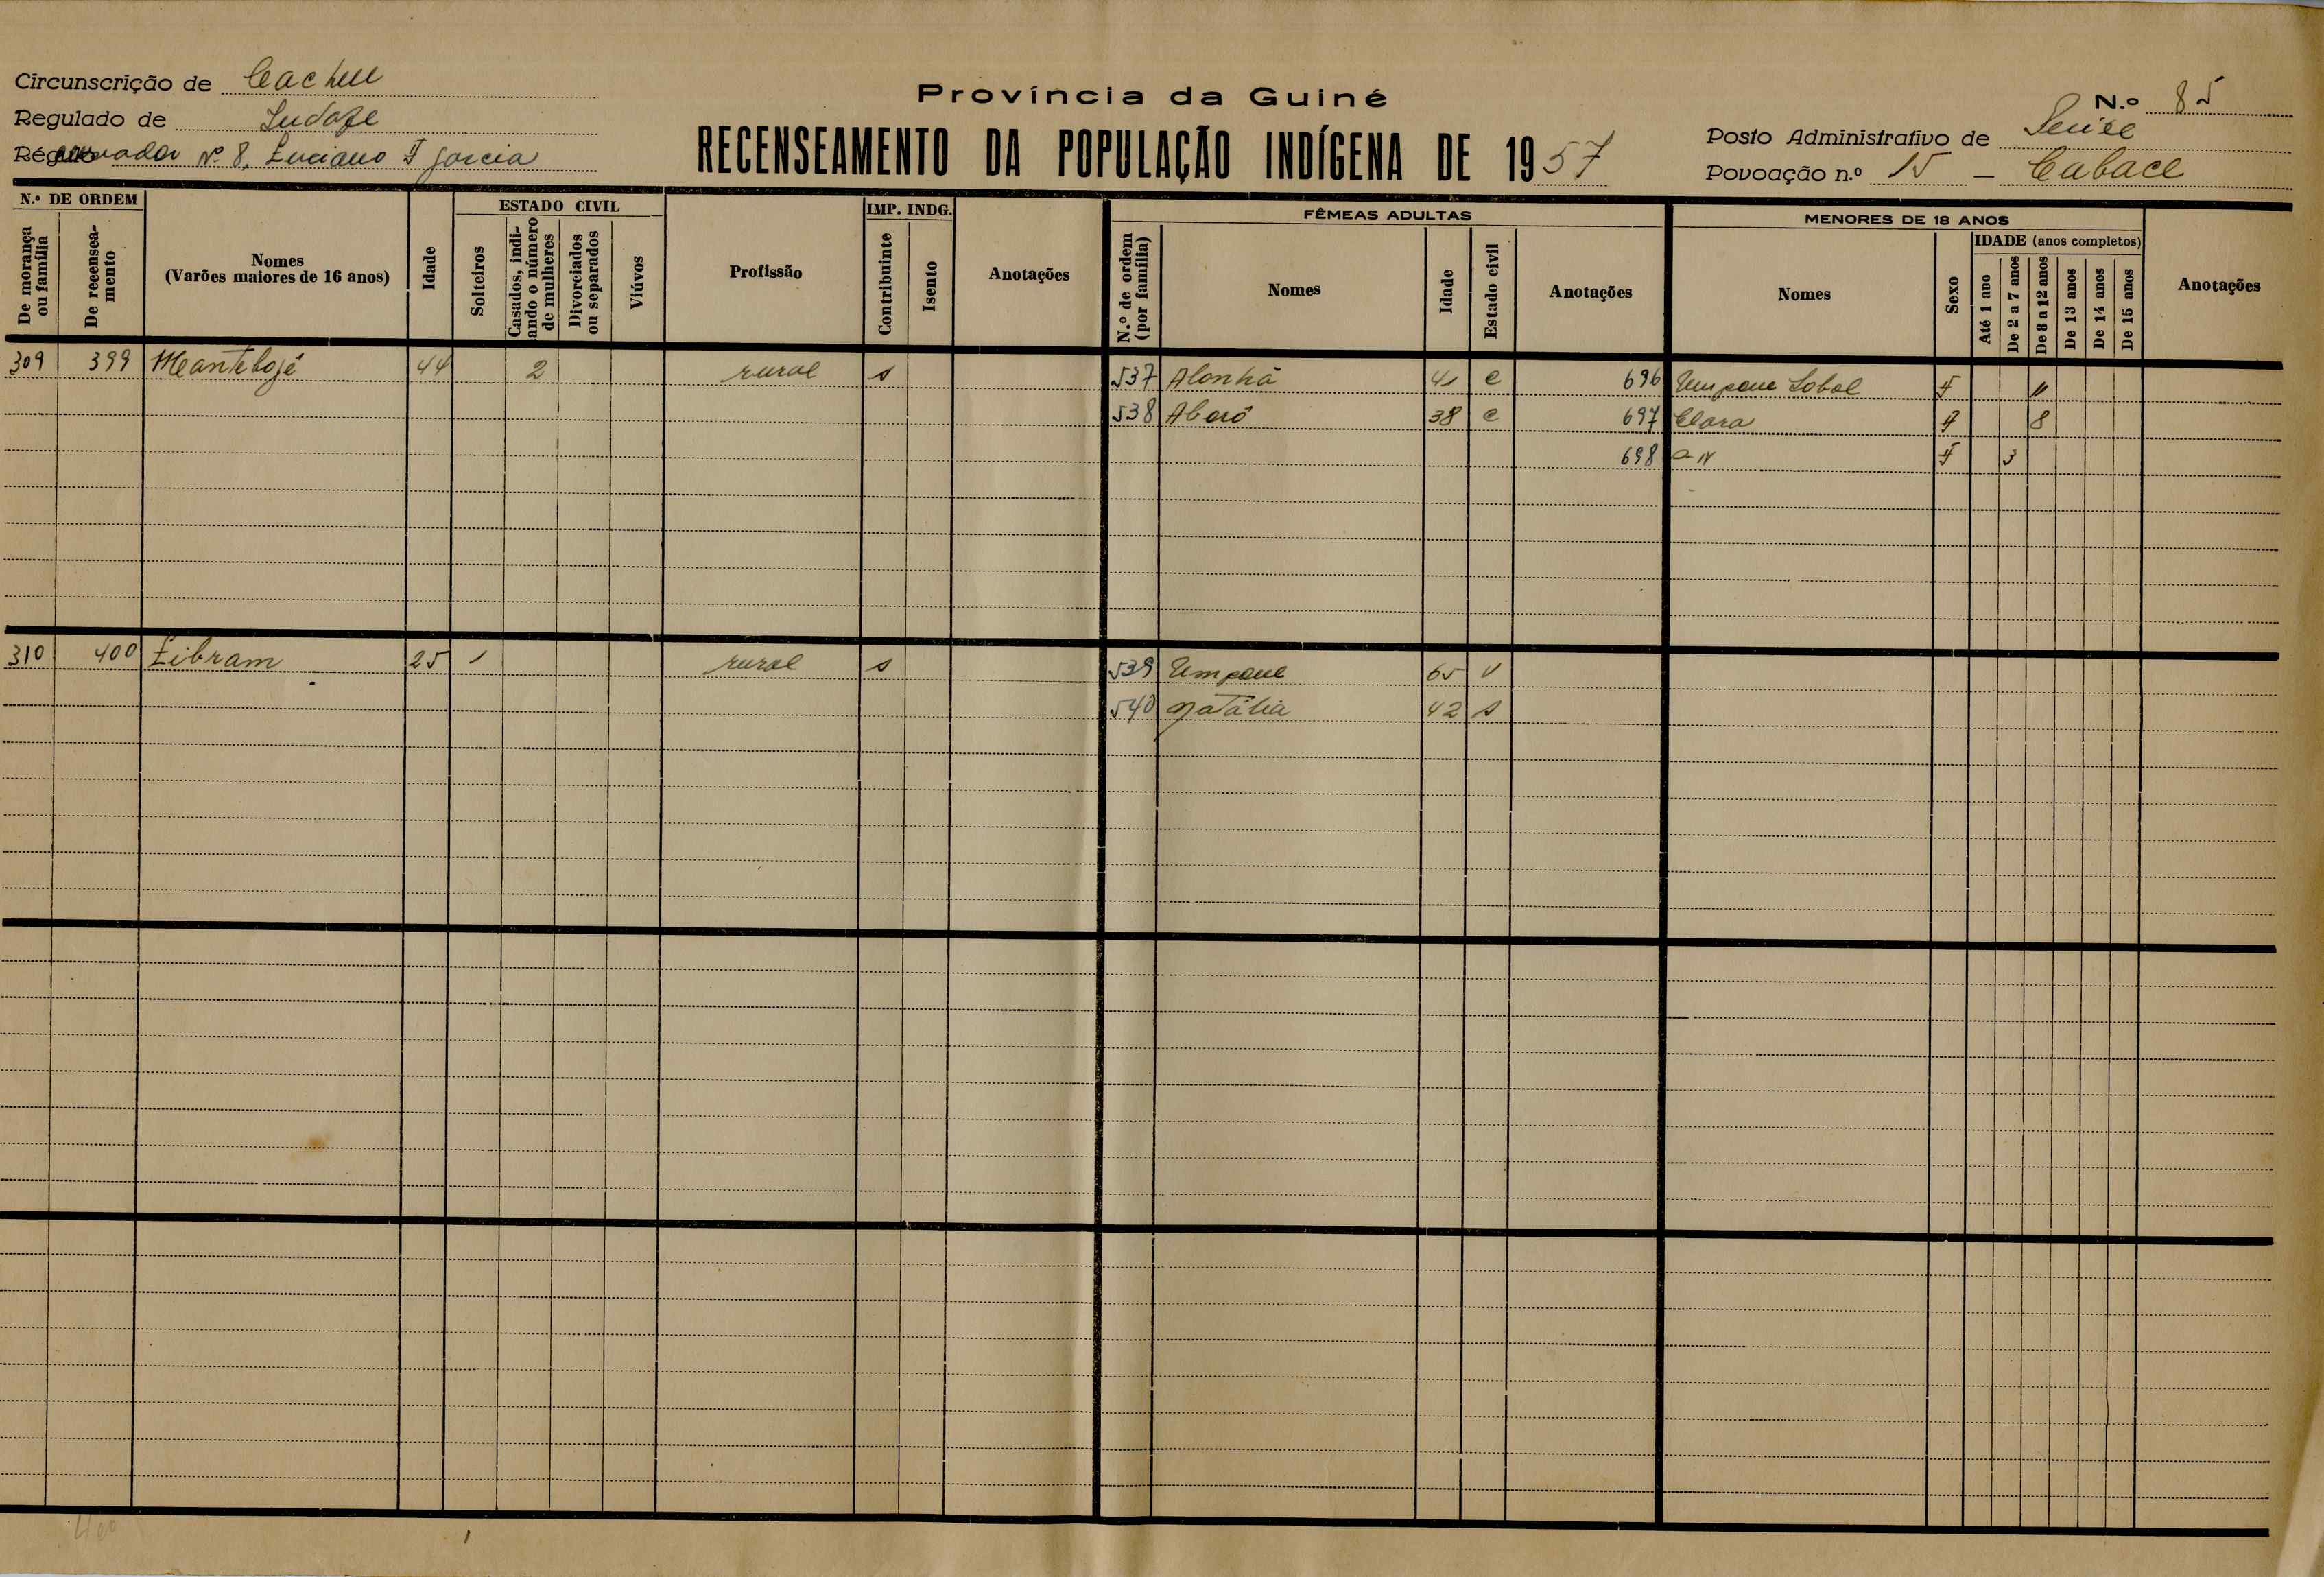 Circunscrição de Cacheu
Província da Guiné
N.º 85
Regulado de
Posto Administrativo de
Régulo Nº 8, Luciano F Garcia
RECENSEAMENTO DA POPULAÇÃO INDÍGENA DE 1957
Povoação n.º 15 —
N.º DE ORDEM
De morança ou família
De recenseamento
Nomes
(Varões maiores de 16 anos)
Idade
ESTADO CIVIL
Solteiros
Casados, indicando o número de mulheres
Divorciados ou separados
Viúvos
Profissão
IMP. INDG.
Contribuinte
Isento
Anotações
FÊMEAS ADULTAS
N.º de ordem (por família)
Nomes
Idade
Estado civil
Anotações
MENORES DE 18 ANOS
Nomes
Sexo
IDADE (anos completos)
Até 1 ano
De 2 a 7 anos
De 8 a 12 anos
De 13 anos
De 14 anos
De 15 anos
Anotações
309 399 44 2 rural s 537 Alonhã 41 c 696 F 11
538 38 c 697 Clara F 8
698 F 3
310 400 Libram 25 1 rural s 539 65 v
540 Natália 42 s
400